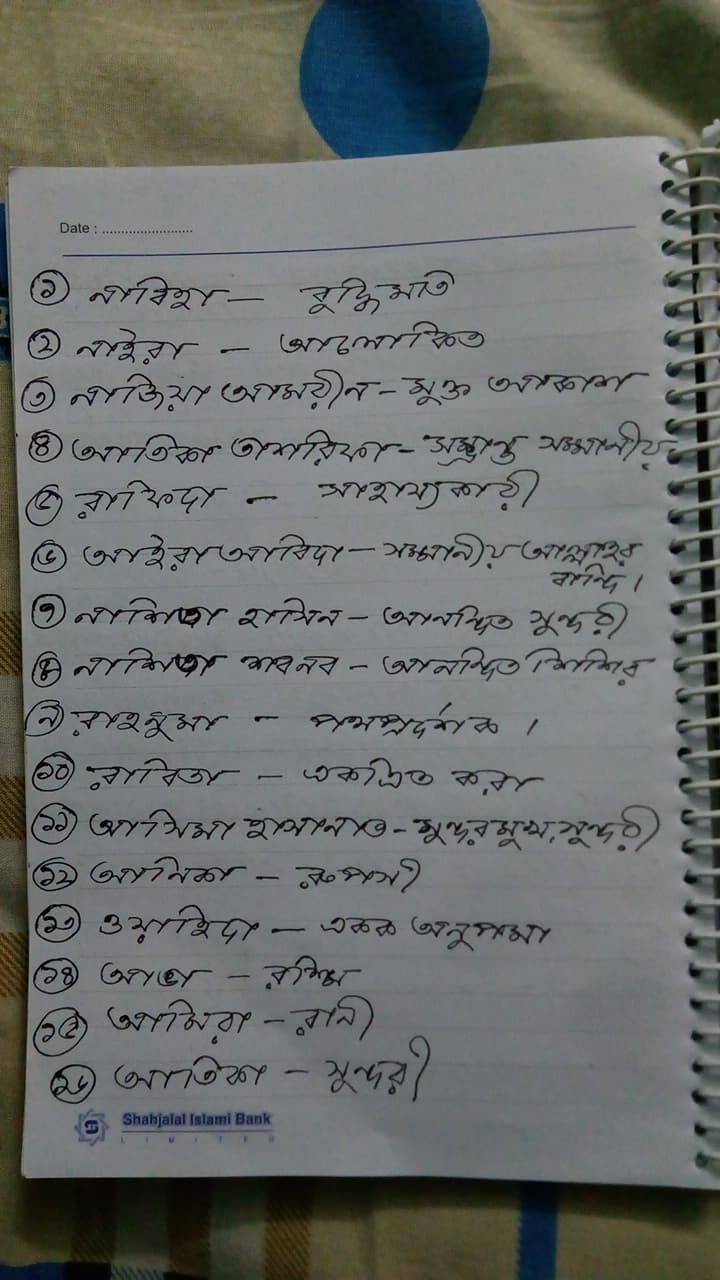 Date : ........................
১ নাবিহা – বুদ্ধিমতি
২ নাইরা – আলোকিত
৩ নাজিয়া আমরীন – মুক্ত আকাশ
৪ আতিকা তাশরিফা – সম্ভ্রান্ত সম্মানীয়
৫ রাফিদা – সাহায্যকারী
৬ আইরা আবিদা – সম্মানীয় আল্লাহর
বান্দি।
৭ নাশিতা হাসিন – আনন্দিত সুন্দরী
৮ নাশিতা শবনব – আনন্দিত শিশির
৯ রাহনুমা – পথপ্রর্দশক।
১০ রাবিতা – একত্রিত করা
১১ আসিমা হাসানাত – সুন্দর মুখ, সুন্দরী
১২ আনিকা – রুপসী
১৩ ওয়াহিদা – একক অনুপমা
১৪ আভা – রশ্মি
১৫ আমিরা – রানী
১৬ আতিকা – সুন্দরী
Shahjalal Islami Bank
LIMITED